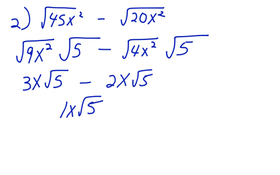 2) √45x² - √20x²
√9x² √5 - √4x² √5
3x√5 - 2x√5
1x√5